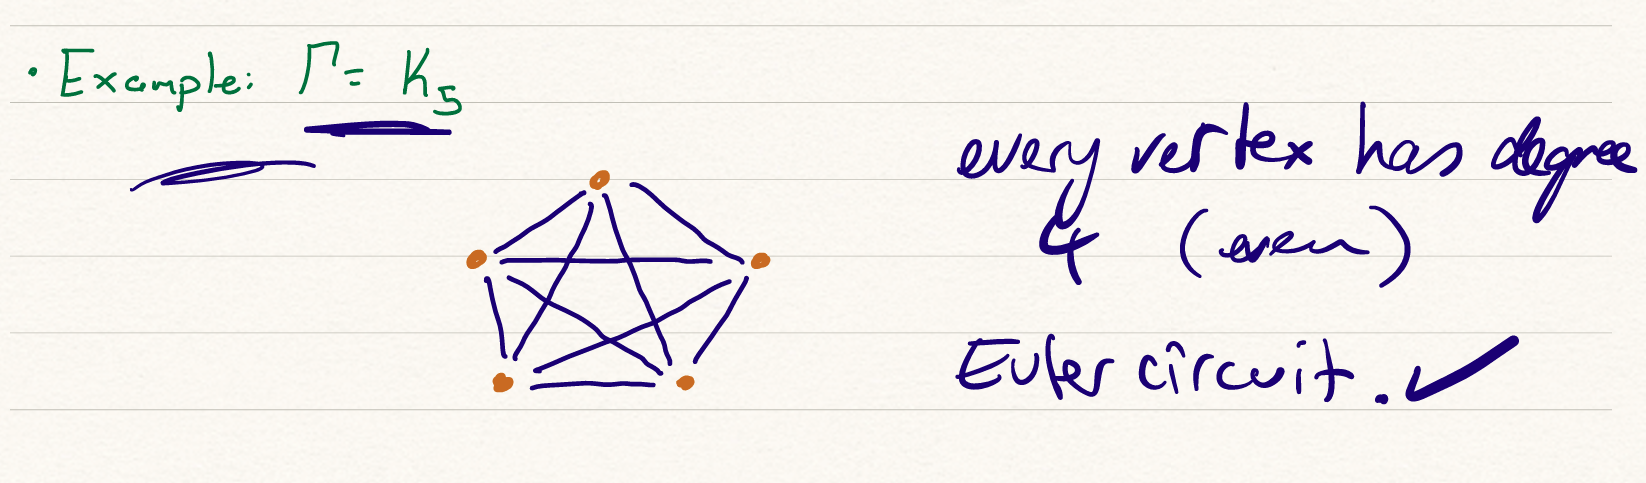 • Example: Γ = K₅
every vertex has degree
4 (even)
Euler circuit. ✓